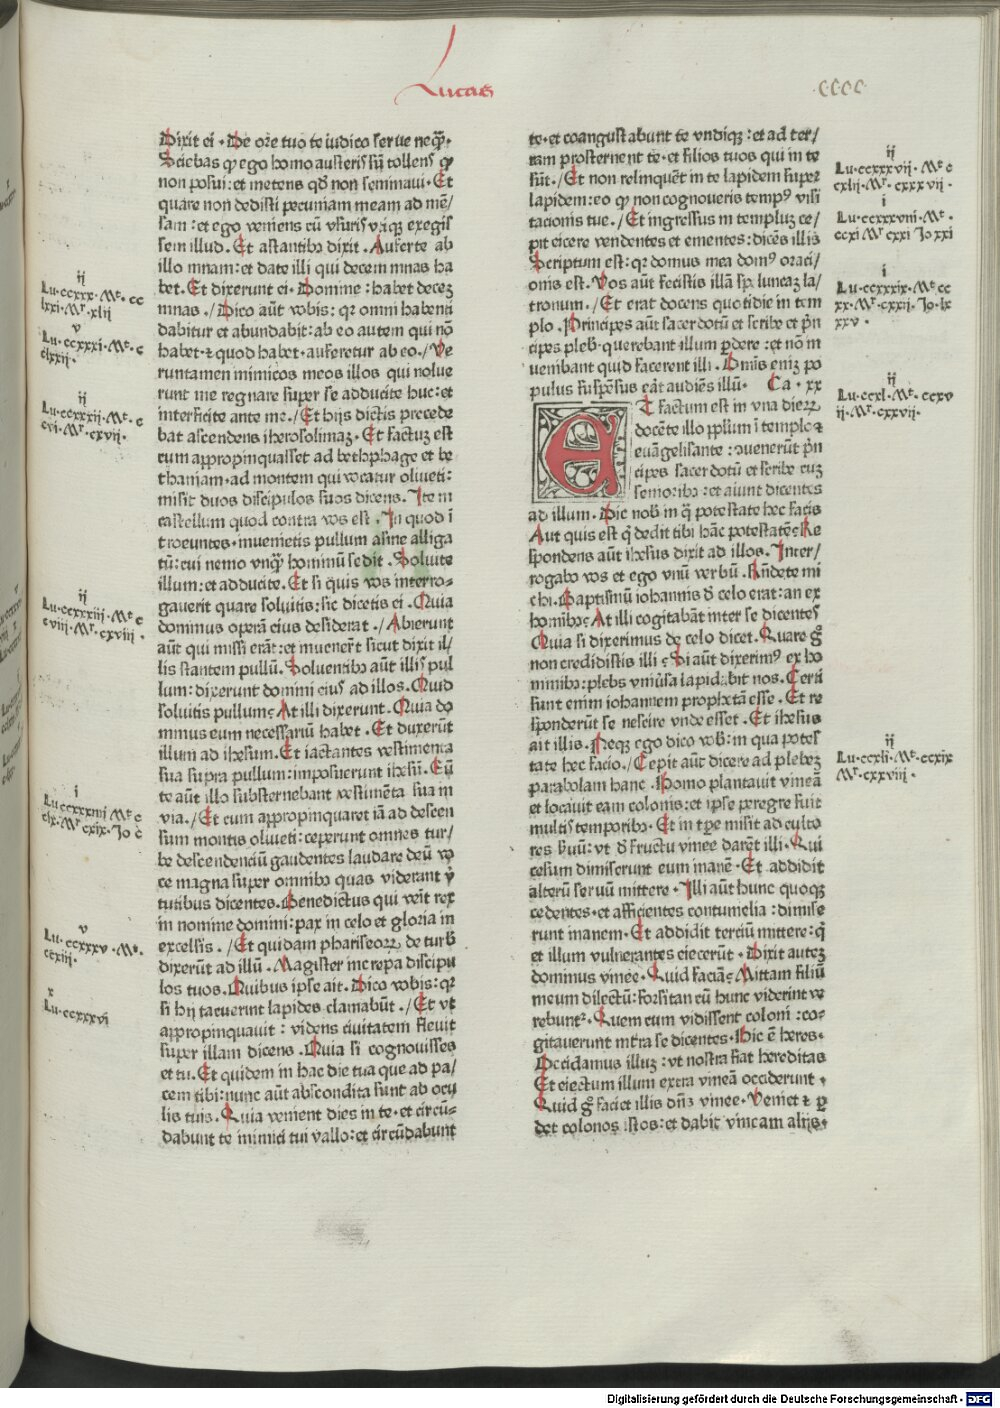 Lucas
cccc
Dixit ei · De ore tuo te iudico serue neq̄ꝫ·
Sciebas ꝙ ego homo austeris sū tollens ꝙ
non posui : et metens qd̄ non seminaui · Et
quare non dedisti pecuniam meam ad mē/
sam : et ego veniens cū vsuris vtiqꝫ exegis
sem illud . Et astantibꝫ dixit . Auferte ab
illo mnam : et date illi qui decem mnas ha
bet . Et dixerunt ei · Domine : habet deceꝫ
mnas ./ Dico aūt vobis : qꝛ omni habenti
dabitur et abundabit : ab eo autem qui nō
habet · ⁊ quod habet · auferetur ab eo ./ Ve
runtamen inimicos meos illos qui nolue
runt me regnare super se adducite huc : et
interficite ante me ./ Et hijs dictis precede
bat ascendens iherosolimaꝫ . Et factuꝫ est
cum appropinquasset ad bethphage et be
thaniam · ad montem qui vocatur oliueti :
misit duos discipulos suos dicens . Ite in
castellum quod contra vos est . In quod ī
troeuntes · inuenietis pullum asine alliga
tū : cui nemo vnqꝫ hominū sedit . Soluite
illum : et adducite . Et si quis vos interro-
gauerit quare soluitis : sic dicetis ei . Quia
dominus operā eius desiderat ./ Abierunt
aūt qui missi erāt : et inuenerūt sicut dixit il/
lis stantem pullū . Soluentibꝫ aūt illis pul
lum : dixerunt domini eius ad illos . Quid
soluitis pullum ? At illi dixerunt . Quia do
minus eum necessariū habet . Et duxerūt
illum ad ihesum . Et iactantes vestimenta
sua supra pullum : imposuerunt ihesū . Eū
te aūt illo substernebant vestimēta sua in
via ./ Et cum appropinquaret iā ad descen
sum montis oliueti : ceperunt omnes tur/
be descendenciū gaudentes laudare deū vo
ce magna super omnibꝫ quas viderant v̓
tutibus dicentes . Benedictus qui venit rex
in nomine domini : pax in celo et gloria in
excelsis . / Et quidam phariseoꝝ de turb̓
dixerūt ad illū . Magister increpa discipu
los tuos . Quibus ipse ait . Dico vobis : qꝛ
si hij tacuerint lapides clamabūt ./ Et vt
appropinquauit : videns ciuitatem fleuit
super illam dicens . Quia si cognouisses
et tu . Et quidem in hac die tua que ad pa/
cem tibi : nunc aūt abscondita sunt ab ocu
lis tuis . Quia venient dies in te · et circū-
dabunt te inimici tui vallo : et circūdabunt
te · et coangustabunt te vndiqꝫ : et ad ter/
ram prosternent te · et filios tuos qui in te
sūt ./ Et non relinquēt in te lapidem super
lapidem : eo ꝙ non cognoueris tempꝰ visi
tacionis tue ./ Et ingressus in templuꝫ ce/
pit eicere vendentes et ementes : dicēs illis
Scriptum est : qꝛ domus mea domꝰ oraci/
onis est . Vos aūt fecistis illā sp̄ luncaꝫ la/
tronum ./ Et erat docens quotidie in tem
plo . Principes aūt sacerdotū et scribe et p̄n
cipes pleb̓ · querebant illum ꝑdere : et nō in
ueniebant quid facerent illi . Omnis enim po
pulus suspēsus erāt audiēs illū . Ca . xx
Et factum est in vna dieꝝ
docēte illo pplum ī templo ⁊
euāgelisante : ꝯuenerūt p̄n
cipes sacerdotū et scribe cuꝫ
senioribꝫ : et aiunt dicentes
ad illum . Dic nob̓ in q̄ potestate hec facis
Aut quis est q̓ dedit tibi hāc potestatē ? Re
spondens aūt ihesus dixit ad illos . Inter/
rogabo vos et ego vnū verbū . Rn̄dete mi
chi . Baptismū iohannis d̓ celo erat : an ex
hominibꝫ ? At illi cogitabāt inter se dicentes
Quia si dixerimus de celo dicet . Quare g̓
non credidistis illi ? Si aūt dixerimꝰ ex ho
minibꝫ : plebs vniūsa lapidabit nos . Certi
sunt enim iohannem prophetā esse . Et re
sponderūt se nescire vnde esset . Et ihesus
ait illis . Neqꝫ ego dico vob̓ : in qua potes
tate hec facio ./ Cepit aūt dicere ad plebeꝫ
parabolam hanc . Homo plantauit vineā
et locauit eam colonis : et ipse peregre fuit
multis temporibꝫ . Et in tp̄e misit ad culto
res s̓uū : vt d̓ fructu vinee darēt illi . Qui
cesum dimiserunt eum inanē . Et addidit
alterū seruū mittere . Illi aūt hunc quoqꝫ
cedentes · et afficientes contumelia : dimise
runt inanem . Et addidit terciū mittere : q̓
et illum vulnerantes eiecerūt . Dixit auteꝫ
dominus vinee . Quid faciā ? Mittam filiū
meum dilectū : forsitan cū hunc viderint ve
rebunt᷑ . Quem cum vidissent coloni : co-
gitauerunt intra se dicentes . Hic ē heres .
Occidamus illuꝫ : vt nostra fiat hereditas
Et eiectum illum extra vineā occiderunt .
Quid g̓ faciet illis dn̄s vinee . Veniet ⁊ ꝑ
det colonos istos : et dabit vineam alijs .
ij
Lu · ccxxx · Mͭ · cc
lxxi · Mͬ · xlij
v
Lu · ccxxxi · Mͭ · c
clxxij ·
ij
Lu · ccxxxij · Mͭ · c
cvi · Mͬ · cxvij ·
ij
Lu · ccxxxiij · Mͭ · c
cviij · Mͬ · cxviij ·
i
Lu ccxxxiiij Mͭ c
clx · Mͬ cxix · Jo c
v
Lu · ccxxxv · Mͭ ·
ccxiij ·
x
Lu · ccxxxvi
ij
Lu · ccxxxvij · Mͭ c
cxlij · Mͬ · cxxxvij ·
i
Lu · ccxxxviii · Mͭ ·
ccxi Mͬ cxxi Jo xxi
i
Lu · ccxxxix · Mͭ cc
xx · Mͬ · cxxij · Jo · lx
xxv ·
ij
Lu · ccxl · Mͭ · ccxv
ij · Mͬ · cxxvij ·
ij
Lu · ccxli · Mͭ · ccxix
Mͬ · cxxviij ·
Digitalisierung gefördert durch die Deutsche Forschungsgemeinschaft - DFG